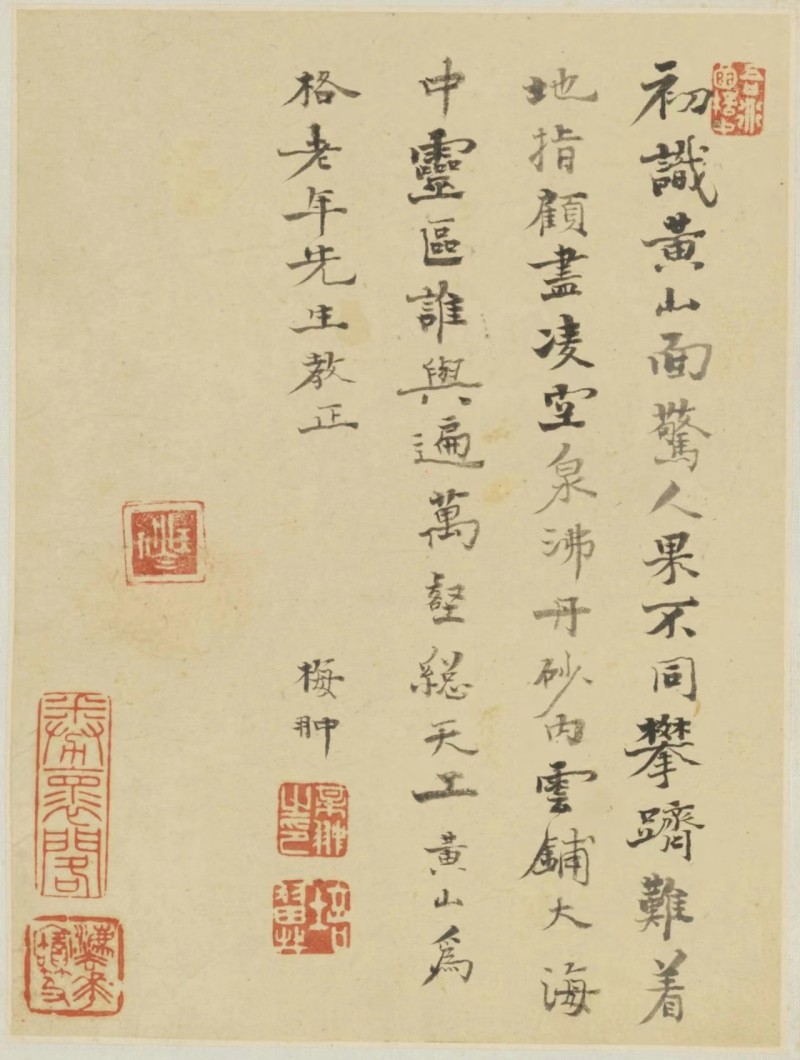 初識黃山面驚人果不同攀躋難着
地指顧盡凌空泉沸丹砂內雲鋪大海
中靈區誰與遍萬壑總天工黃山為
格老年先生教正
梅翀